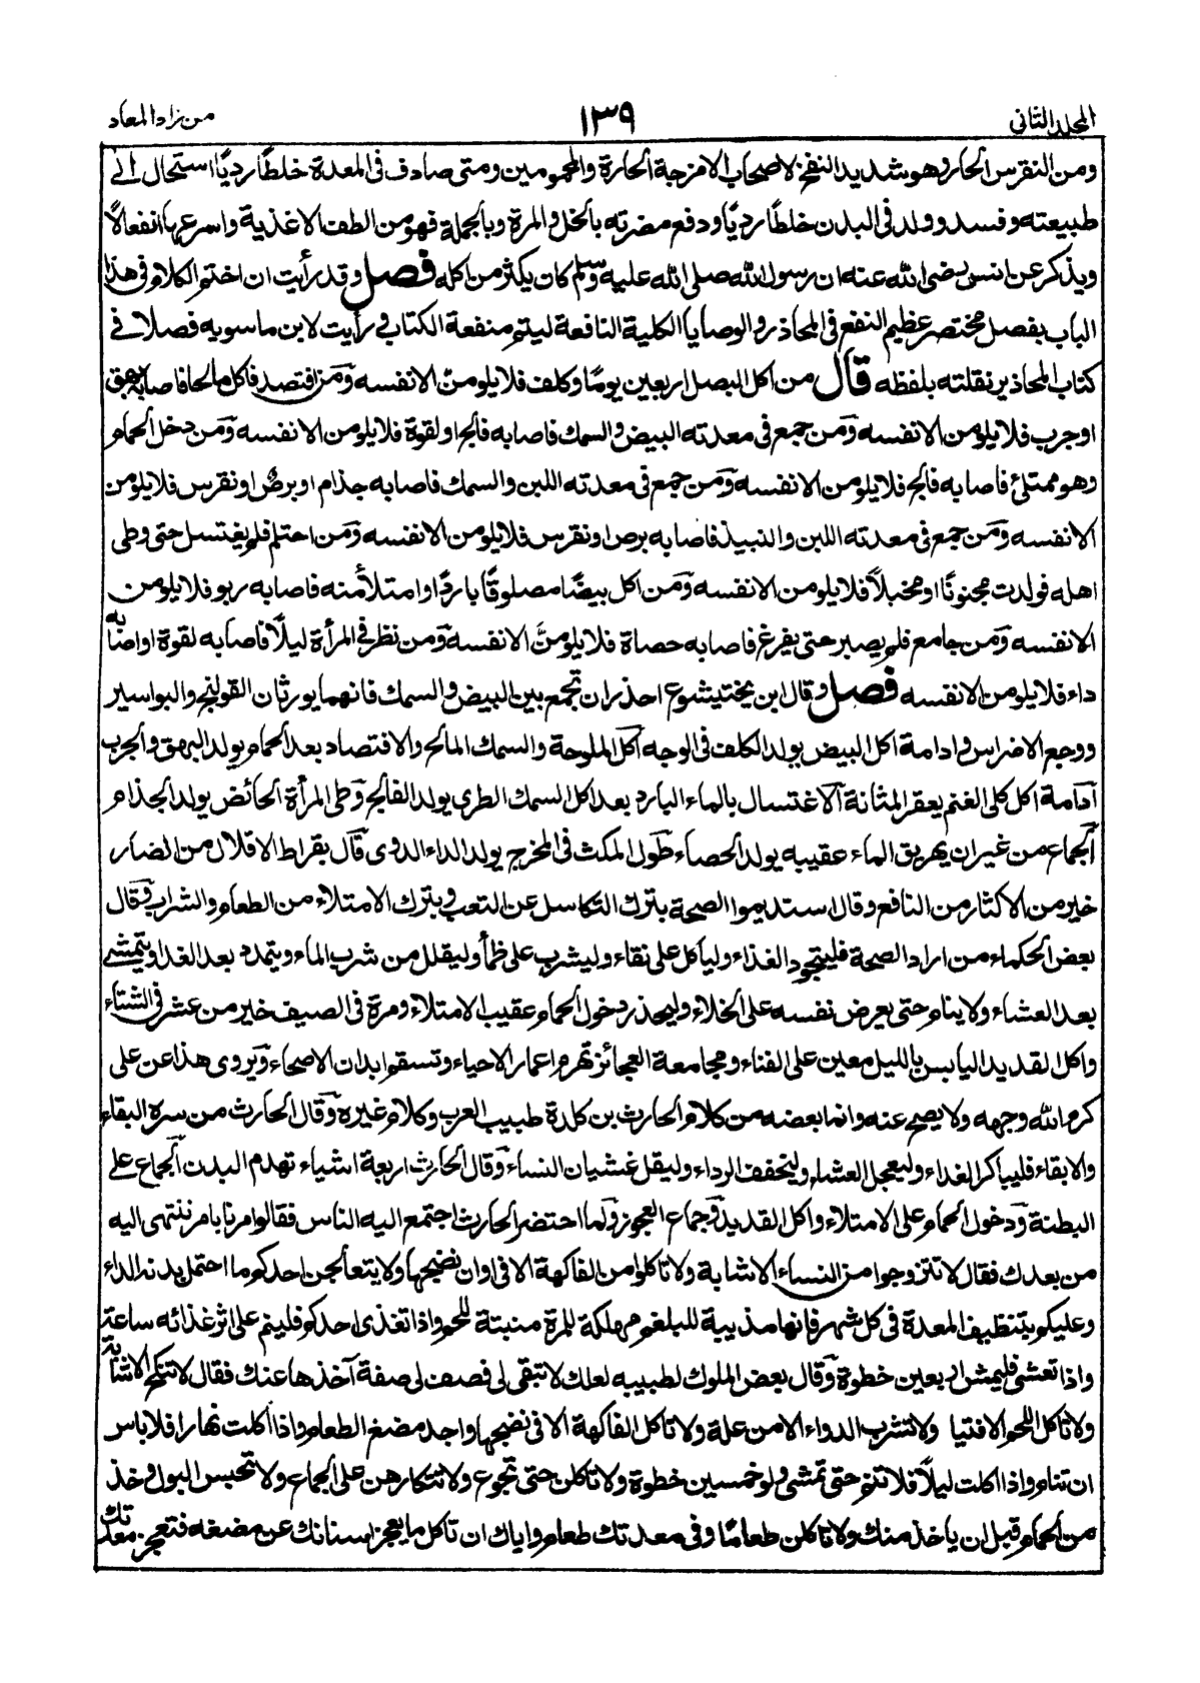 المجلد الثاني
١٣٩
من زاد المعاد
ومن النقرس الحار وهو شديد النفع لاصحاب الامزجة الحارة والمحمومين ومتى صادف فى المعدة خلطًا رديًا استحال الى
طبيعته وفسد وولد فى البدن خلطًا رديًا ودفع مضرته بالخل والمرة وبالجملة فهو من الطف الاغذية واسرعها انفعالًا
ويذكر عن انس رضى الله عنه ان رسول الله صلى الله عليه وسلم كان يكثر من اكله فصل وقد رأيت ان اختم الكلام فى هذا
الباب بفصل مختصر عظيم النفع فى المحاذر والوصايا الكلية النافعة ليتم منفعة الكتاب ورأيت لابن ماسويه فصلا فى
كتاب المحاذير نقلته بلفظه قال من اكل البصل اربعين يومًا وكلف فلا يلومن الا نفسه ومن افتصد فاكل مالحا فاصابه بهق
او جرب فلا يلومن الا نفسه ومن جمع فى معدته البيض والسمك فاصابه فالج او لقوة فلا يلومن الا نفسه ومن دخل الحمام
وهو ممتلئ فاصابه فالج فلا يلومن الا نفسه ومن جمع فى معدته اللبن والسمك فاصابه جذام او برص او نقرس فلا يلومن
الا نفسه ومن جمع فى معدته اللبن والنبيذ فاصابه برص او نقرس فلا يلومن الا نفسه ومن احتلم فلم يغتسل حتى وطى
اهله فولدت مجنونًا او مخبلًا فلا يلومن الا نفسه ومن اكل بيضًا مصلوقًا باردًا وامتلأ منه فاصابه ربو فلا يلومن
الا نفسه ومن جامع فلم يصبر حتى يفرغ فاصابه حصاة فلا يلومنَّ الا نفسه ومن نظر فى المرأة ليلًا فاصابه لقوة او اصابه
داء فلا يلومن الا نفسه فصل وقال ابن بختيشوع احذر ان تجمع بين البيض والسمك فانهما يورثان القولنج والبواسير
ووجع الاضراس وادامة اكل البيض يولد الكلف فى الوجه اكل الملوحة والسمك المالح والافتصاد بعد الحمام يولد البهق والجرب
ادامة اكل كلى الغنم يعقر المثانة الاغتسال بالماء البارد بعد اكل السمك الطرى يولد الفالج وطى المرأة الحائض يولد الجذام
الجماع من غير ان يهريق الماء عقيبه يولد الحصاء طول المكث فى المخرج يولد الداء الدوى قال بقراط الاقلال من الضار
خير من الاكثار من النافع وقال استديموا الصحة بترك التكاسل عن التعب وبترك الامتلاء من الطعام والشراب وقال
بعض الحكماء من اراد الصحة فليتجود الغذاء ولياكل على نقاء وليشرب على ظمأ وليقلل من شرب الماء ويتمدد بعد الغدا ويتمشى
بعد العشاء ولا ينام حتى يعرض نفسه على الخلاء وليحذر دخول الحمام عقيب الامتلاء ومرة فى الصيف خير من عشر فى الشتاء
واكل القديد اليابس بالليل معين على الفناء ومجامعة العجائز تهرم اعمار الاحياء وتسقم ابدان الاصحاء ويروى هذا عن على
كرم الله وجهه ولا يصح عنه وانما بعضه من كلام الحارث بن كلدة طبيب العرب وكلام غيره وقال الحارث من سره البقاء
ولا بقاء فليباكر الغداء وليعجل العشاء وليخفف الرداء وليقل غشيان النساء وقال الحارث اربعة اشياء تهدم البدن الجماع على
البطنة ودخول الحمام على الامتلاء واكل القديد وجماع العجوز ولما احتضر الحارث اجتمع اليه الناس فقالوا مرنا بامر ننتهى اليه
من بعدك فقال لا تتزوجوا من النساء الا شابة ولا تاكلوا من الفاكهة الا فى اوان نضيجها ولا يتعالجن احدكم ما احتمل بدنه الداء
وعليكم بتنظيف المعدة فى كل شهر فانها مذيبة للبلغم مهلكة للمرة منبتة للحم واذا تغذى احدكم فلينم على اثر غذائه ساعة
واذا تعشى فليمش اربعين خطوة وقال بعض الملوك لطبيبه لعلك لا تبقى لى فصف لى صفة آخذها عنك فقال لا تنكح الا شابة
ولا تاكل اللحم الا فتيا ولا تشرب الدواء الا من علة ولا تاكل الفاكهة الا فى نضيجها واجد مضغ الطعام واذا اكلت نهارا فلا باس
ان تنام واذا اكلت ليلًا فلا تنم حتى تمشى ولو خمسين خطوة ولا تاكلن حتى تجوع ولا تتكارهن على الجماع ولا تحبس البول وخذ
من الحمام قبل ان ياخذ منك ولا تاكلن طعامًا وفى معدتك طعام واياك ان تاكل ما يعجز اسنانك عن مضغه فتعجز معدتك